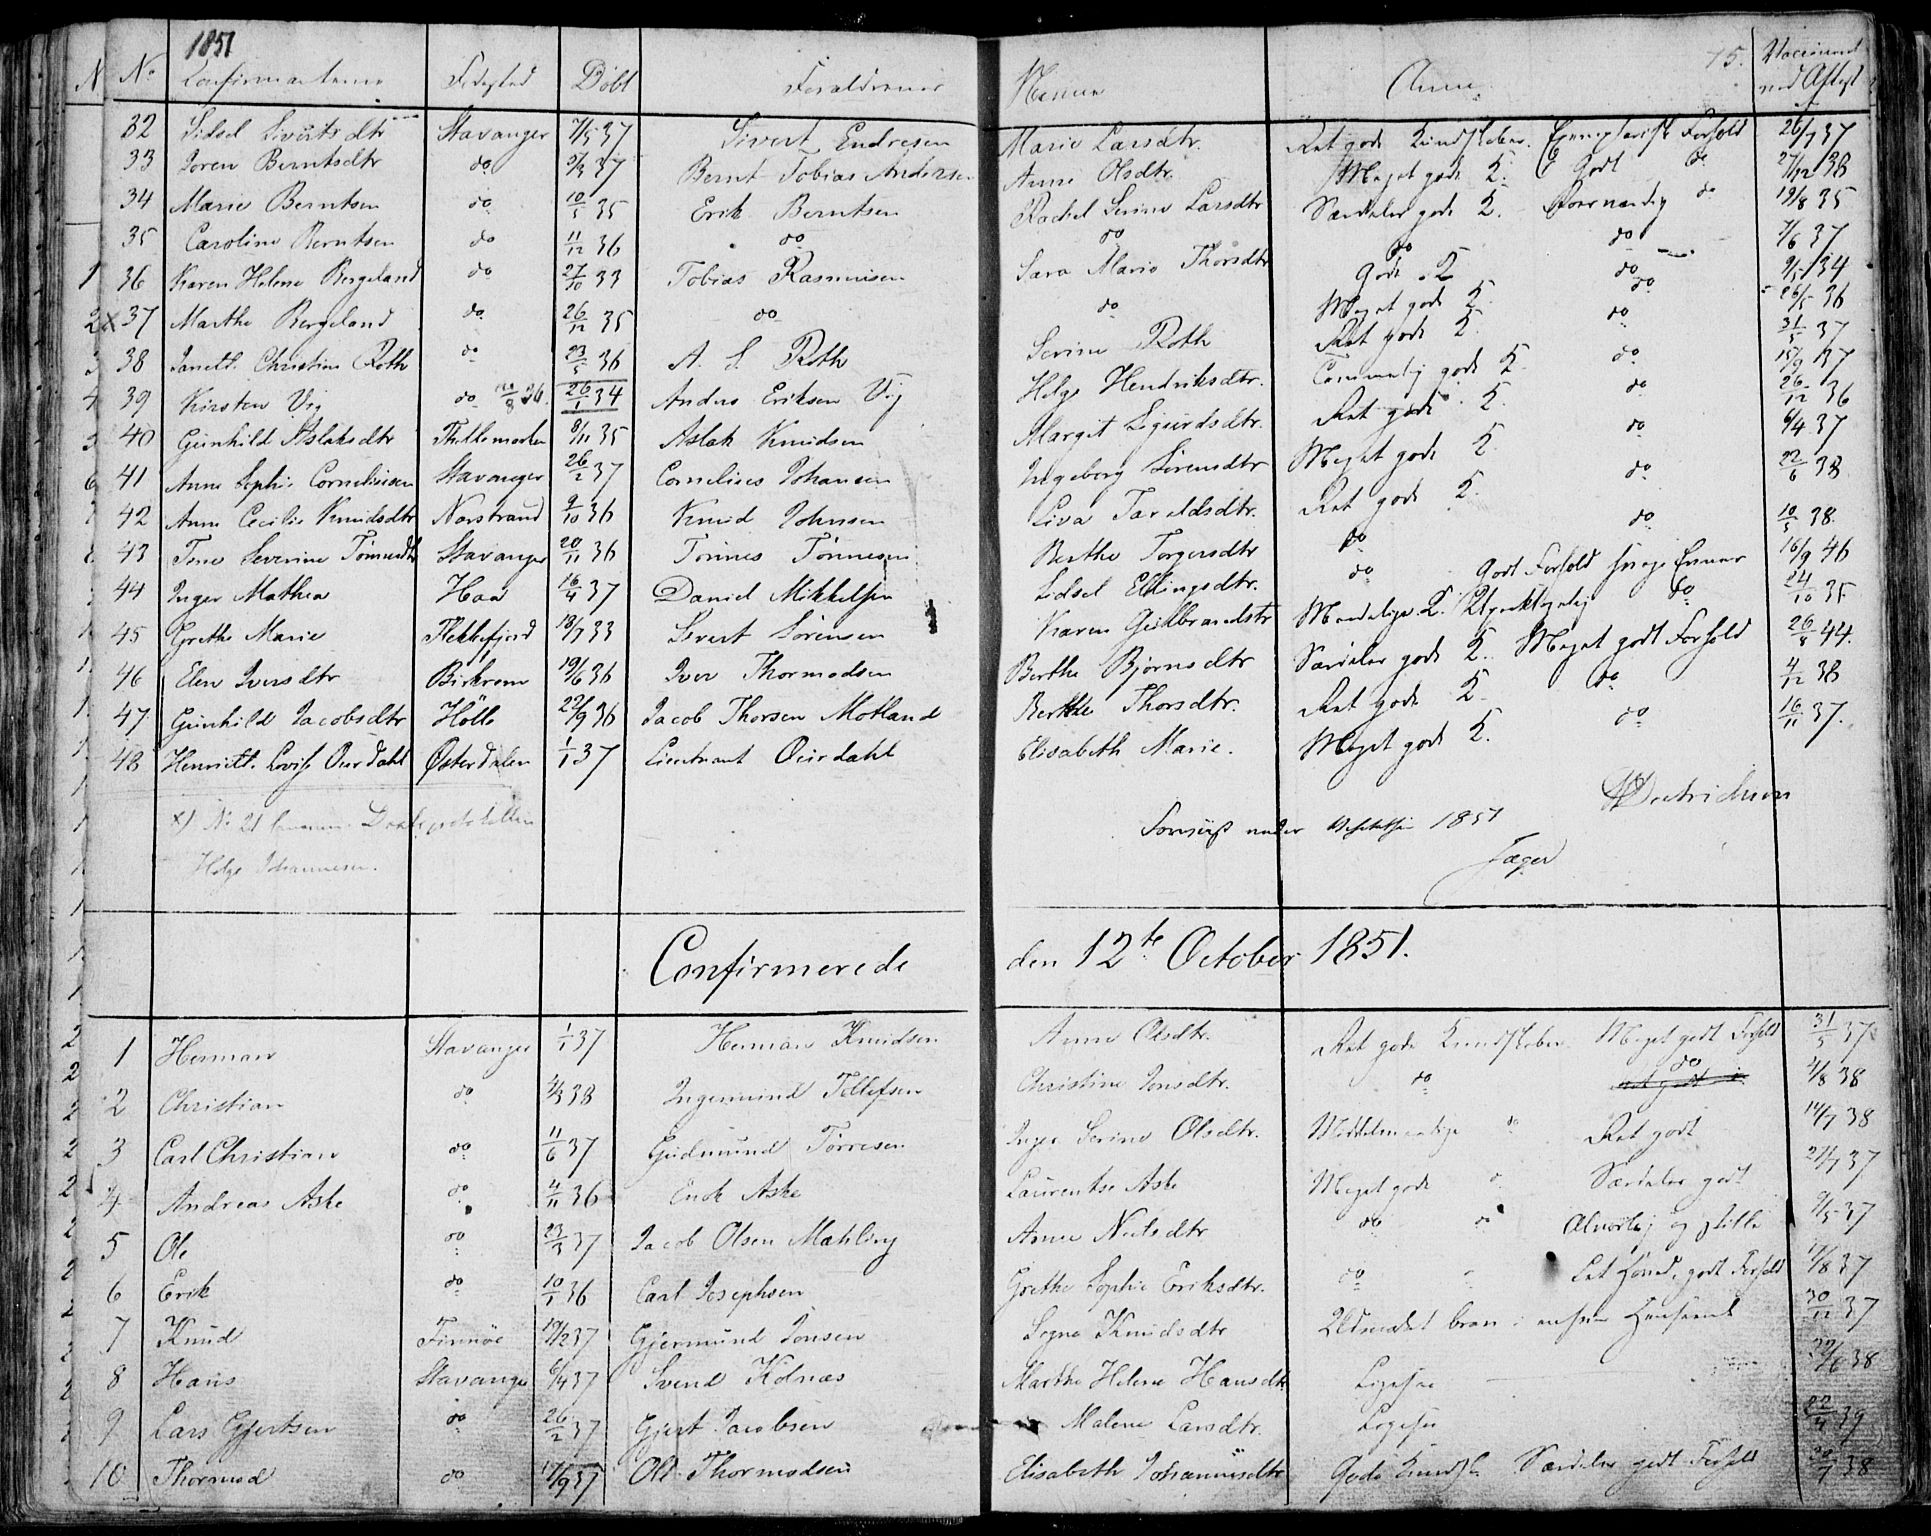 1851
No Confirmanterne Fødested Døbt Forældrenes Navne Anm. 75. Vaccineret
32 Sidsel Siverts dtr Stavanger 7/5 37 Sivert Endresen Marie Larsdtr. Ret gode Kundskaber. Exemplarisk Forhold 26/7 37
33 Joren Berntsdtr do 9/3 37 Bernt Tobias Andersen Anne Olsdtr. Meget gode K. Godt do 27/12 38
34 Marie Berntsen do 10/5 35 Erik Berntsen Rachel Serine Larsdtr Særdeles gode K. do 19/8 35
35 Caroline Berntsen do 11/12 36 do do do do 7/6 37
36 Karen Helene Bergeland do 27/10 33 Tobias Rasmusen Sara Marie Thorsdtr Gode K do 9/5 34
x 37 Marthe Bergeland do 26/12 35 do do Meget gode K. do 26/5 36
38 Janett. Christine Roth do 23/5 36 A. S. Roth Serine Roth Ret gode K. do 31/5 37
39 Kirsten Vig do 20/8 36. 26/1 34 Anders Eriksen Vig Helge Hendriksdtr. Temmelig gode K. do 15/9 37
40 Gunhild Aslaksdtr Thellemarken 8/11 35 Aslak Knudsen Margit Sigurdsdtr. Ret gode K. do 26/12 36
41 Anne Sophie Corneliusen Stavanger 26/2 37 Cornelius Johansen Ingeborg Sørensdtr Meget gode K. do 6/4 37
42 Anne Cecilie Knudsdtr Norstrand 9/10 36 Knud Johnsen Siva Taraldsdtr. Ret gode K. do 22/6 38
43 Tone Severine Tønnesdtr Stavanger 20/11 36 Tønnes Tønnesen Berthe Torgersdtr do do 10/5 38.
44 Inger Mathea Haa 16/4 37 Daniel Mikkelsen Sidsel Ellingsdtr. do Godt Forhold svage Evner 16/9 46
45 Grethe Marie Flekkefjord 18/7 33 Sivert Sørensen Karen Gulbrandsdtr Maadelige K. Upaaklagelig do 24/10 35
46 Elen Iversdtr Birkrem 19/6 36 Iver Thormodsen Berthe Bjørnsdtr Særdeles gode K. Meget godt Forhold 26/8 44.
47 Gunhild Jacobsdtr Hølle 22/9 36 Jacob Thorsen Motland Berthe Thorsdtr. Ret gode K. do 4/12 38
48 Henriett. Lovise Ourdahl Østerdalen 1/1 37 Lieutnant Ourdahl Elisabeth Marie. Meget gode K. do 16/11 37.
x) No 21
Helge Johannesen.
under Visitatsen 1851
Jæger
Confirmerede den 12te October 1851.
1 Herman Stavanger 1/1 37 Herman Knudsen Anne Olsdtr. Ret gode Kundskaber Meget godt Forhold 31/5 37
2 Christian do 4/3 38 Ingemund Tollefsen Christine Jonsdtr. do do 4/8 38
3 Carl Christian do 11/6 37 Gudmund Tørresen Inger Serine Olsdtr. Middelmaadige do Ret godt 14/7 38
4 Andreas Aske do 4/11 36 Enok Aske Laurentse Aske Meget gode do Særdeles godt 27/7 37
5 Ole do 23/3 37 Jacob Olsen Mæhling Anne Nielsdtr do do Alvorlig og stille 9/5 37
6 Erik do 10/1 36 Carl Josephsen Grethe Sophie Eriksdtr. do godt Forhold 17/8 37
7 Knud Finnøe 19/2 37 Gjermund Jonsen Signe Knudsdtr Udmærket brav i enhver Henseende 30/12 37
8 Hans Stavanger 6/4 37 Svend Kolnæs Marthe Helene Hansdtr Ligesaa 30/6 38
9 Lars Gjertsen do 26/2 37 Gjert Jacobsen Malene Larsdtr. Ligesaa 22/4 39
10 Thormod do 17/9 37 Ole Thormodsen Elisabeth Johannesdtr Gode Kundsk. Særdeles godt Forhold 30/7 38